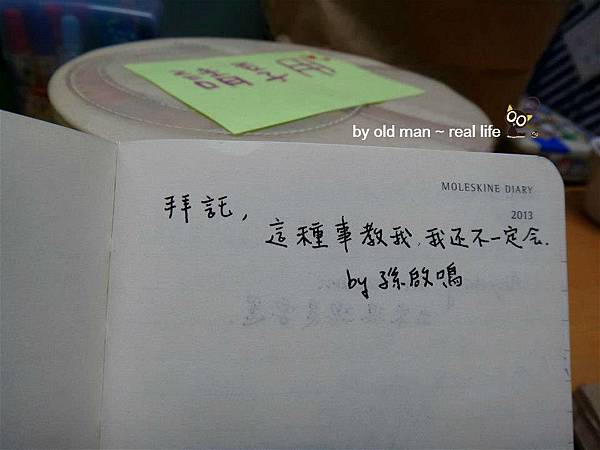 by old man ~ real life
MOLESKINE DIARY
2013
拜託,
這種事教我,我还不一定会.
by 孫啟鳴